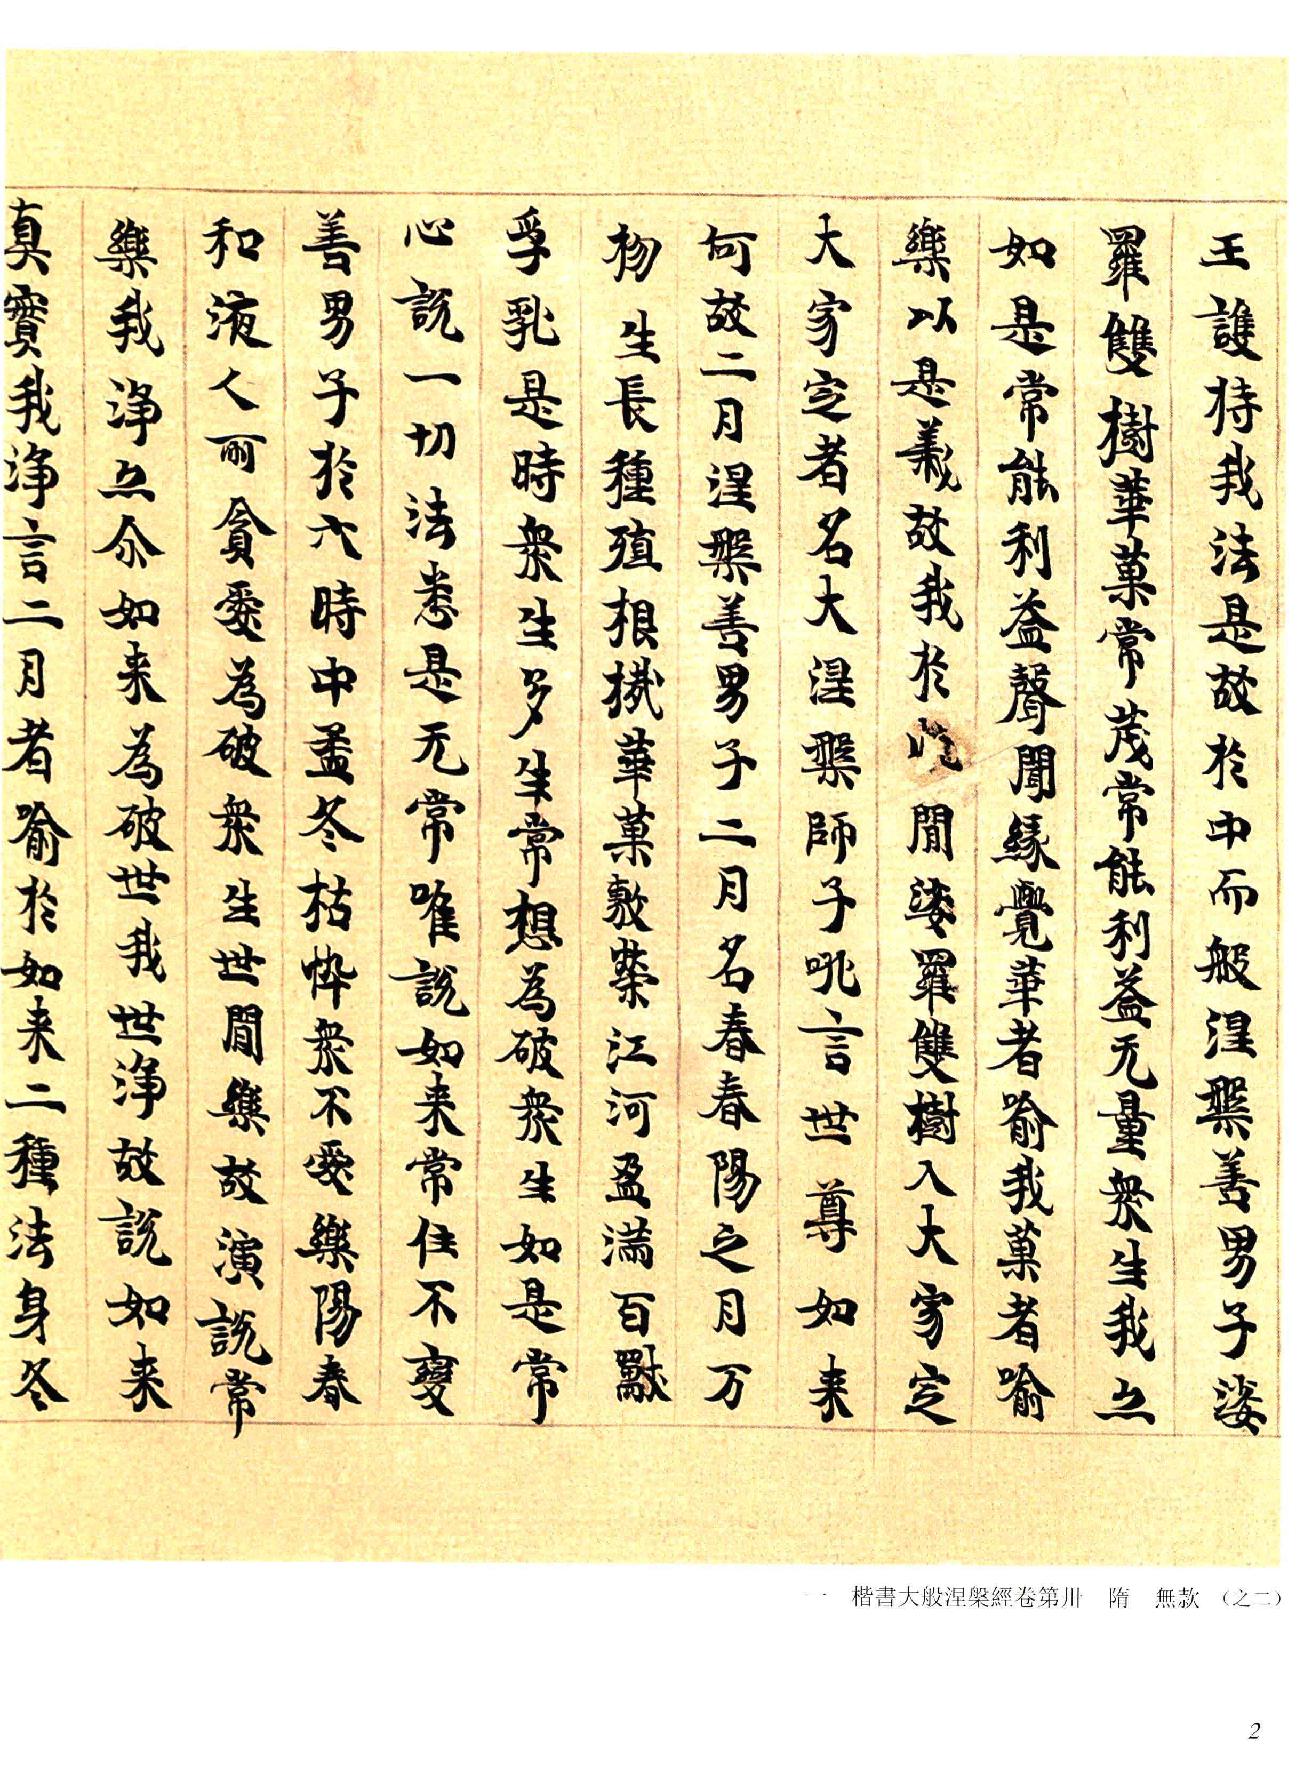 王護持我法是故於中而般涅槃善男子娑
羅雙樹華菓常茂常能利益无量衆生我亦
如是常能利益聲聞緣覺華者喻我菓者喻
樂以是義故我於此間娑羅雙樹入大家定
大家定者名大涅槃師子吼言世尊如来
何故二月涅槃善男子二月名春春陽之月万
物生長種殖根栽華菓敷榮江河盈滿百獸
孚乳是時衆生多生常想為破衆生如是常
心說一切法悉是无常唯說如来常住不變
善男子於六時中孟冬枯悴衆不愛樂陽春
和液人所貪愛為破衆生世間樂故演說常
樂我淨亦尒如来為破世我世淨故說如来
真實我淨言二月者喻於如来二種法身冬
一 楷書大般涅槃經卷第卅 隋 無款 （之二）
2